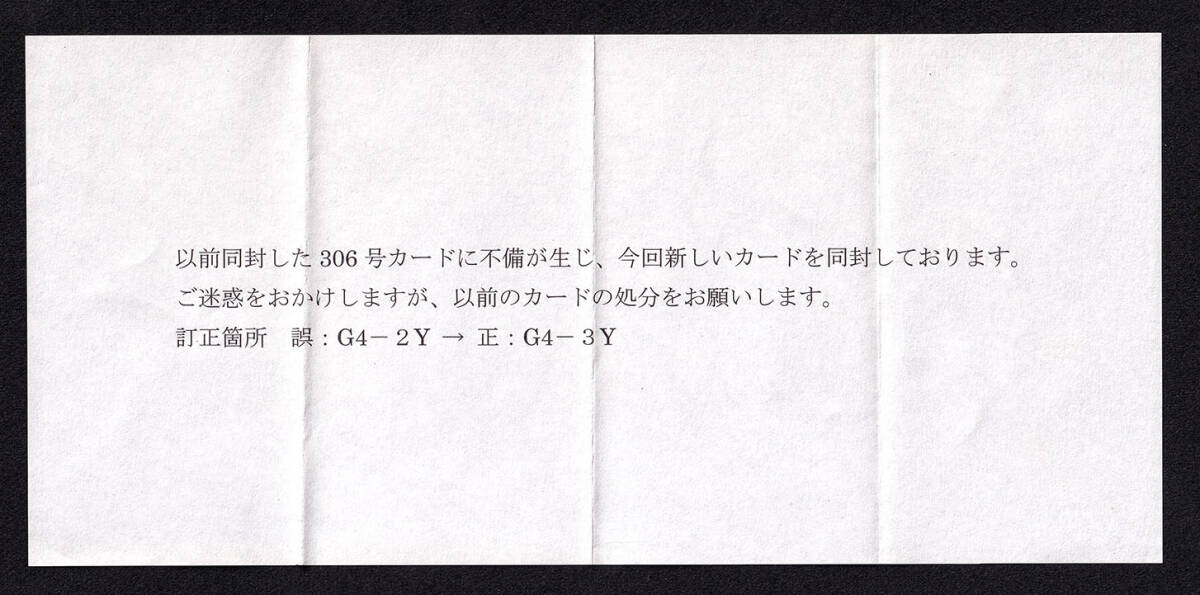 以前同封した 306 号カードに不備が生じ、今回新しいカードを同封しております。
ご迷惑をおかけしますが、以前のカードの処分をお願いします。
訂正箇所　誤：G4－２Y → 正：G4－３Y